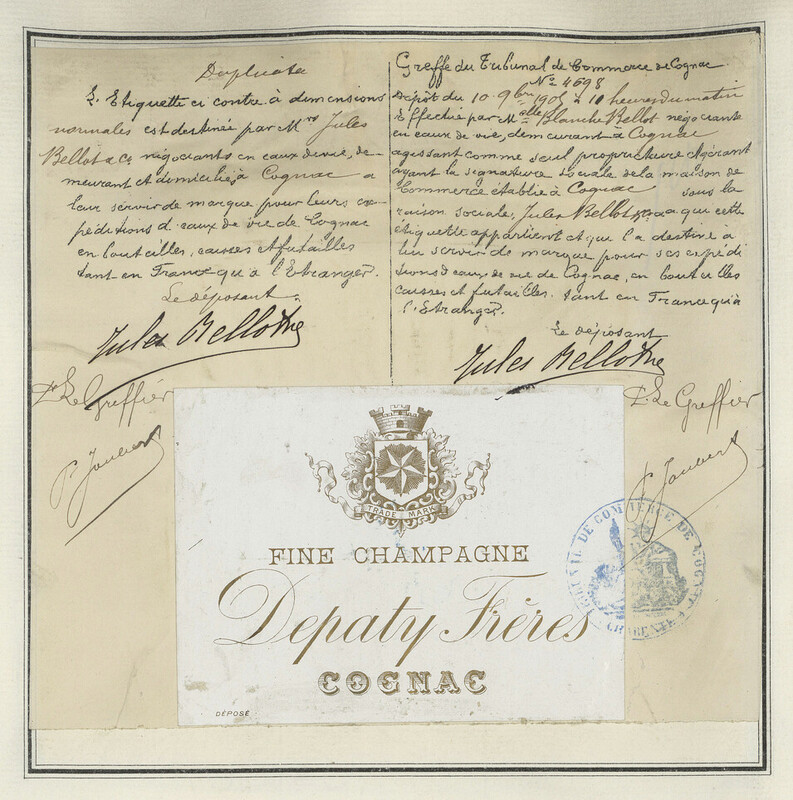 Duplicata
L'Etiquette ci contre à dimensions
normales est destinée par Mrs Jules
Bellot & Co négociants en eaux de vie, de-
meurant et domiciliés à Cognac a
leur servir de marque pour leurs ex-
péditions d'eaux de vie de Cognac
en bouteilles, caisses et futailles
tant en France qu'à l'Etranger.
Le déposant
Jules Bellot & Co
Pr Le Greffier
P. Joubert
Greffe du Tribunal de Commerce de Cognac
No 4698
Dépôt du 10 9bre 1905 à 10 heures du matin
Effectué par Melle Blanche Bellot négociante
en eaux de vie, demeurant à Cognac
agissant comme seul propriétaire & gérant
ayant la signature sociale de la maison de
Commerce établie à Cognac sous la
raison sociale, Jules Bellot & Co a que cette
étiquette appartient et qu'l'a destiné à
lui servir de marque pour ses expédi
tions d'eaux de vie de Cognac, en bouteilles
caisses et futailles. tant en France qu'à
l'Etranger.
Le déposant
Jules Bellot & Co
Pr Le Greffier
P. Joubert
TRADE MARK
FINE CHAMPAGNE
Depaty Frères
COGNAC
DÉPOSÉ
TRIBUNAL DE COMMERCE DE COGNAC
CHARENTE